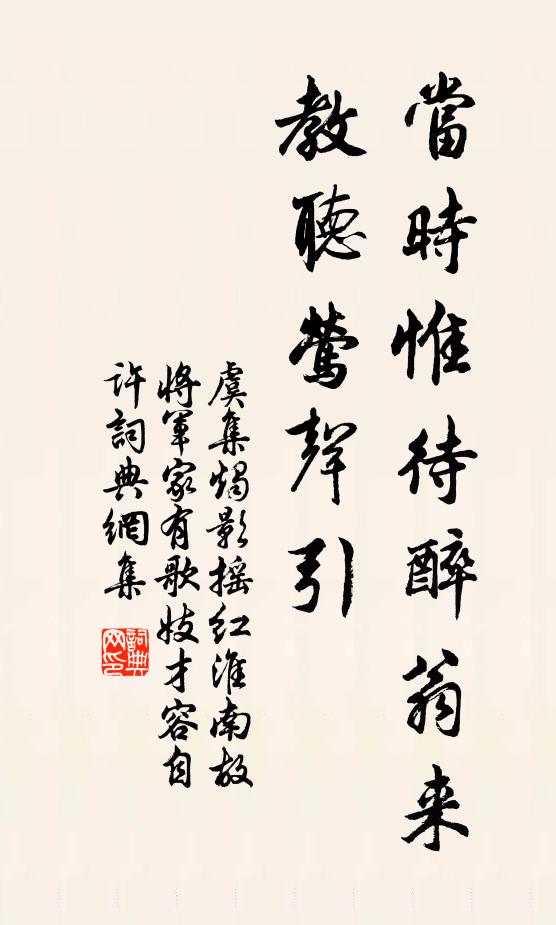 當時惟待醉翁来
教聽鶯聲引
虞集燭影摇红淮南故
将軍家有歌妓才容自
许詞典網集
詞典網印